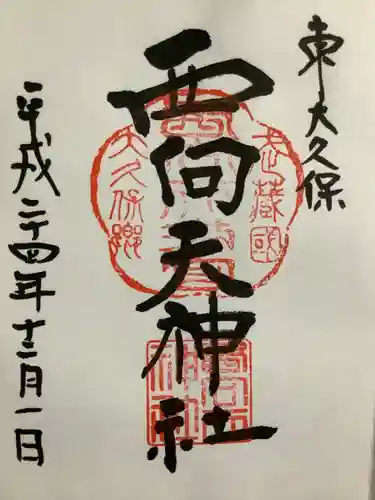 東大久保
西向天神社
平成二十四年十二月一日
武蔵国
大久保郷